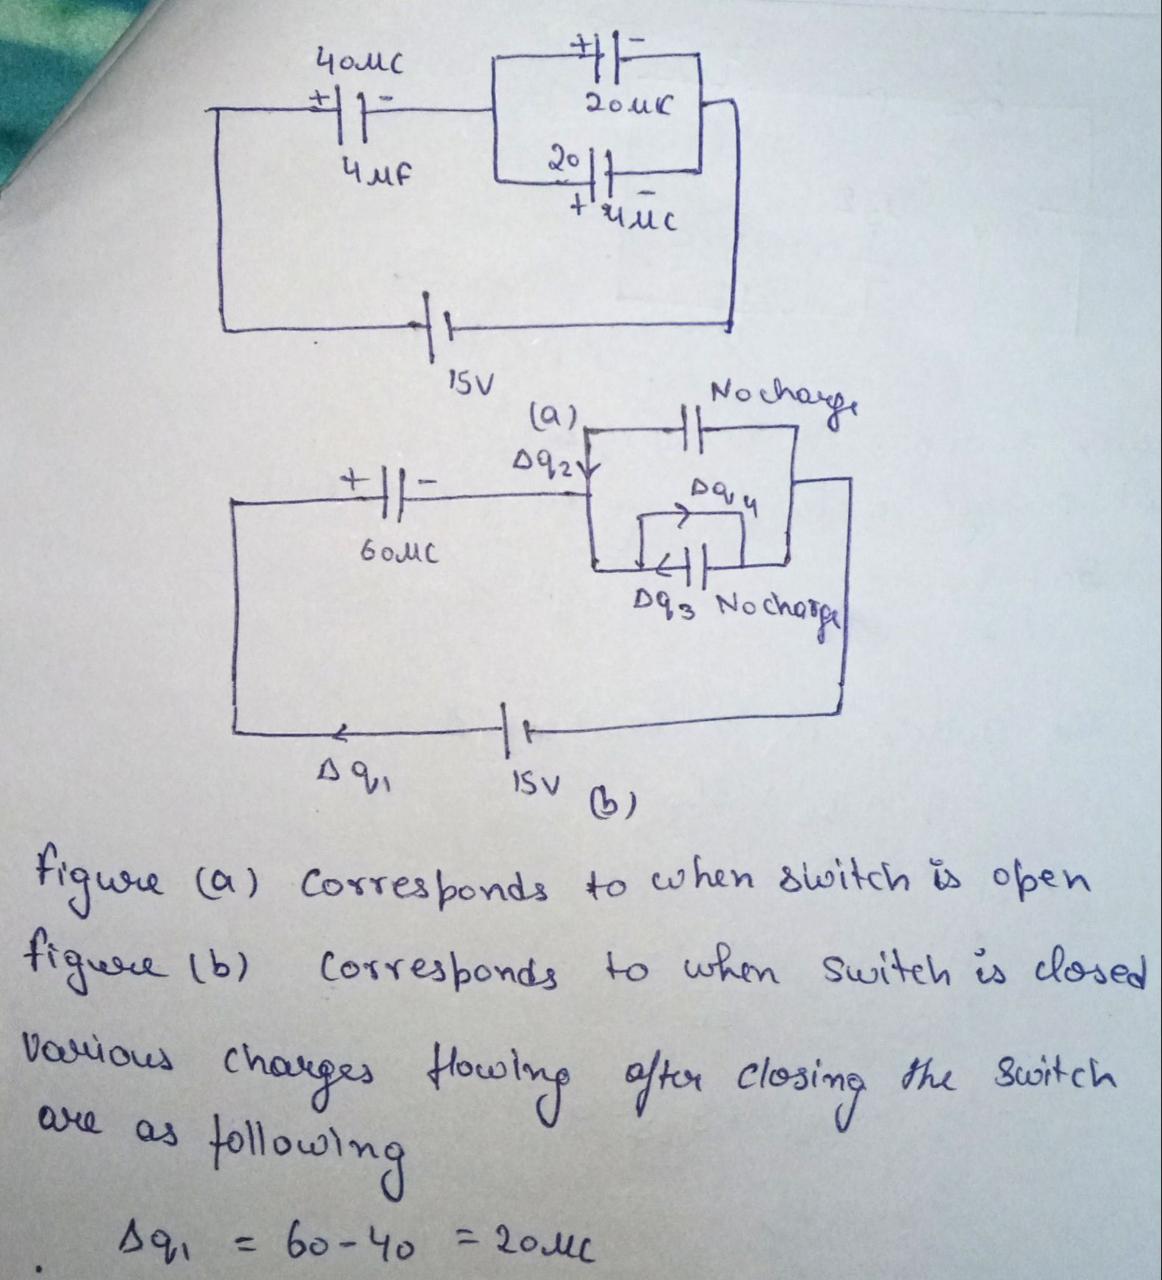 40μC
+ -
+ -
20μC
4μF
20
+ -
4μC
15V
(a)
No charge
Δq2
+ -
Δq4
60μC
Δq3 No charge
Δq1
15V
(b)
figure (a) corresponds to when switch is open
figure (b) corresponds to when switch is closed
various charges flowing after closing the switch
are as following
Δq1 = 60-40 = 20μC